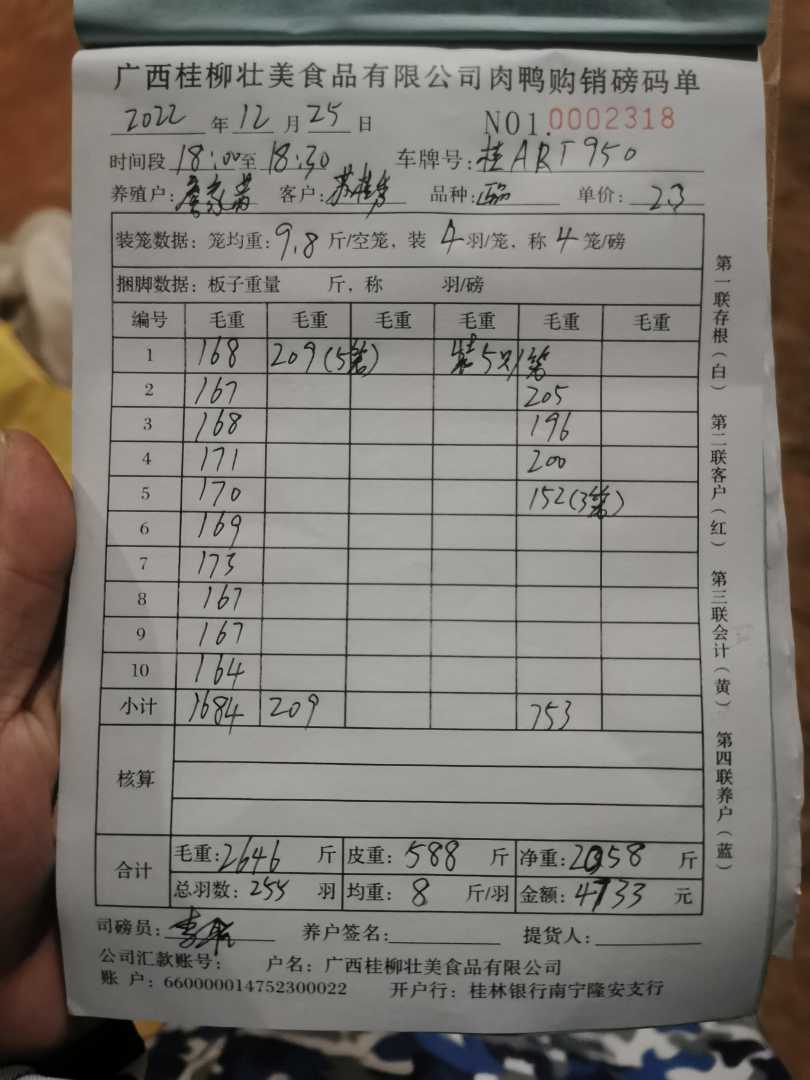 广西桂柳壮美食品有限公司肉鸭购销磅码单
2022 年 12 月 25 日 NO1.0002318
时间段 18:00 至 18:30 车牌号: 桂ART950
养殖户: 客户: 苏桂 品种: 单价: 2.3
装笼数据: 笼均重: 9.8 斤/空笼, 装 4 羽/笼, 称 4 笼/磅
捆脚数据: 板子重量 斤, 称 羽/磅
编号 毛重 毛重 毛重 毛重 毛重 毛重
1 168 209(5笼) 装5只/笼
2 167 205
3 168 196
4 171 200
5 170 152(3笼)
6 169
7 173
8 167
9 167
10 164
小计 1684 209 753
核算
合计 毛重: 2646 斤 皮重: 588 斤 净重: 2058 斤
总羽数: 255 羽 均重: 8 斤/羽 金额: 4733 元
司磅员: 养户签名: 提货人:
公司汇款账号: 户名: 广西桂柳壮美食品有限公司
账 户: 660000014752300022 开户行: 桂林银行南宁隆安支行
第一联存根(白) 第二联客户(红) 第三联会计(黄) 第四联养户(蓝)